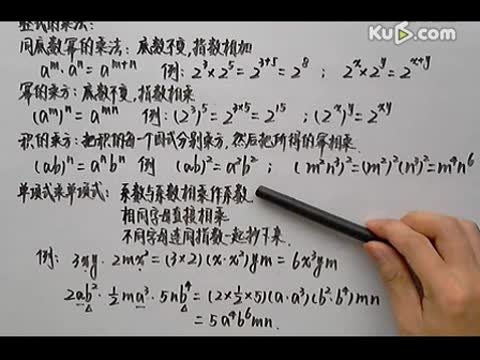 Ku6.com
整式的乘法:
同底数幂的乘法: 底数不变,指数相加
aᵐ·aⁿ=aᵐ⁺ⁿ 例: 2³×2⁵=2³⁺⁵=2⁸ ; 2ˣ×2ʸ=2ˣ⁺ʸ
幂的乘方: 底数不变,指数相乘
(aᵐ)ⁿ=aᵐⁿ 例: (2³)⁵=2³ˣ⁵=2¹⁵ ; (2ˣ)ʸ=2ˣʸ
积的乘方: 把积的每一个因式分别乘方,然后把所得的幂相乘.
(ab)ⁿ=aⁿbⁿ 例 (ab)²=a²b² ; (m²n³)²=(m²)²(n³)²=m⁴n⁶
单项式乘单项式: 系数与系数相乘作系数
相同字母直接相乘
不同字母连同指数一起抄下来.
例: 3xy·2mx²=(3×2)(x·x²)ym=6x³ym
2ab²·½ma³·5nb⁴=(2×½×5)(a·a³)(b²·b⁴)mn
=5a⁴b⁶mn.